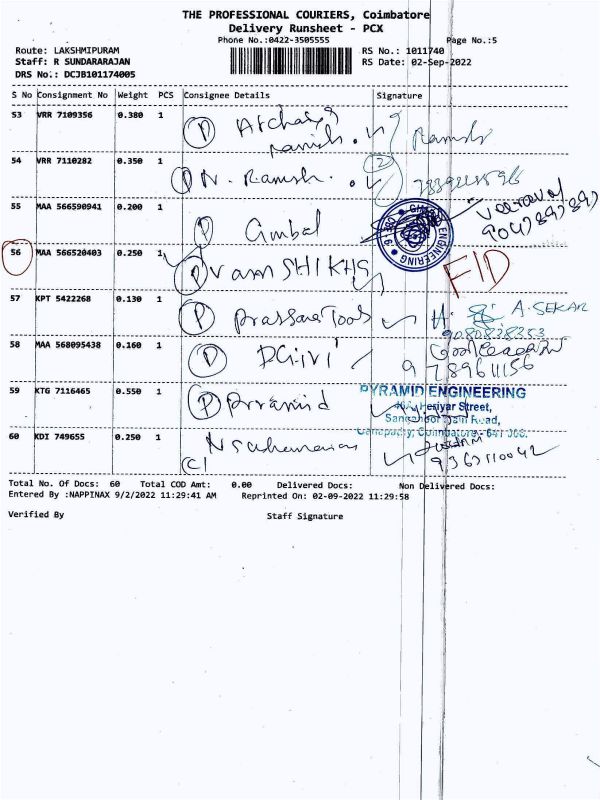 THE PROFESSIONAL COURIERS, Coimbatore
Delivery Runsheet - PCX
Phone No.:0422-3505555
Page No.:5
Route: LAKSHMIPURAM
RS No.: 1011740
Staff: R SUNDARARAJAN
RS Date: 02-Sep-2022
DRS No.: DCJB101174005
S No Consignment No Weight PCS Consignee Details Signature
53 VRR 7109356 0.380 1 P
Ramesh
54 VRR 7110282 0.350 1 P N. Ramesh. 2
55 MAA 566590941 0.200 1 P Gimbal
ENGINEERING
56 MAA 566520403 0.250 1 P VamSHIKHS FID
57 KPT 5422268 0.130 1 P Prassana Tools A. SEKAR
9080828353
58 MAA 568095438 0.160 1 P DGiri
9789611156
59 KTG 7116465 0.550 1 P Pyramid
PYRAMID ENGINEERING
Periyar Street,
Road,
Ganapathy, Coimbatore - 641 006.
60 KDI 749655 0.250 1
9363110042
Total No. Of Docs: 60 Total COD Amt: 0.00 Delivered Docs: Non Delivered Docs:
Entered By :NAPPINAX 9/2/2022 11:29:41 AM Reprinted On: 02-09-2022 11:29:58
Verified By Staff Signature